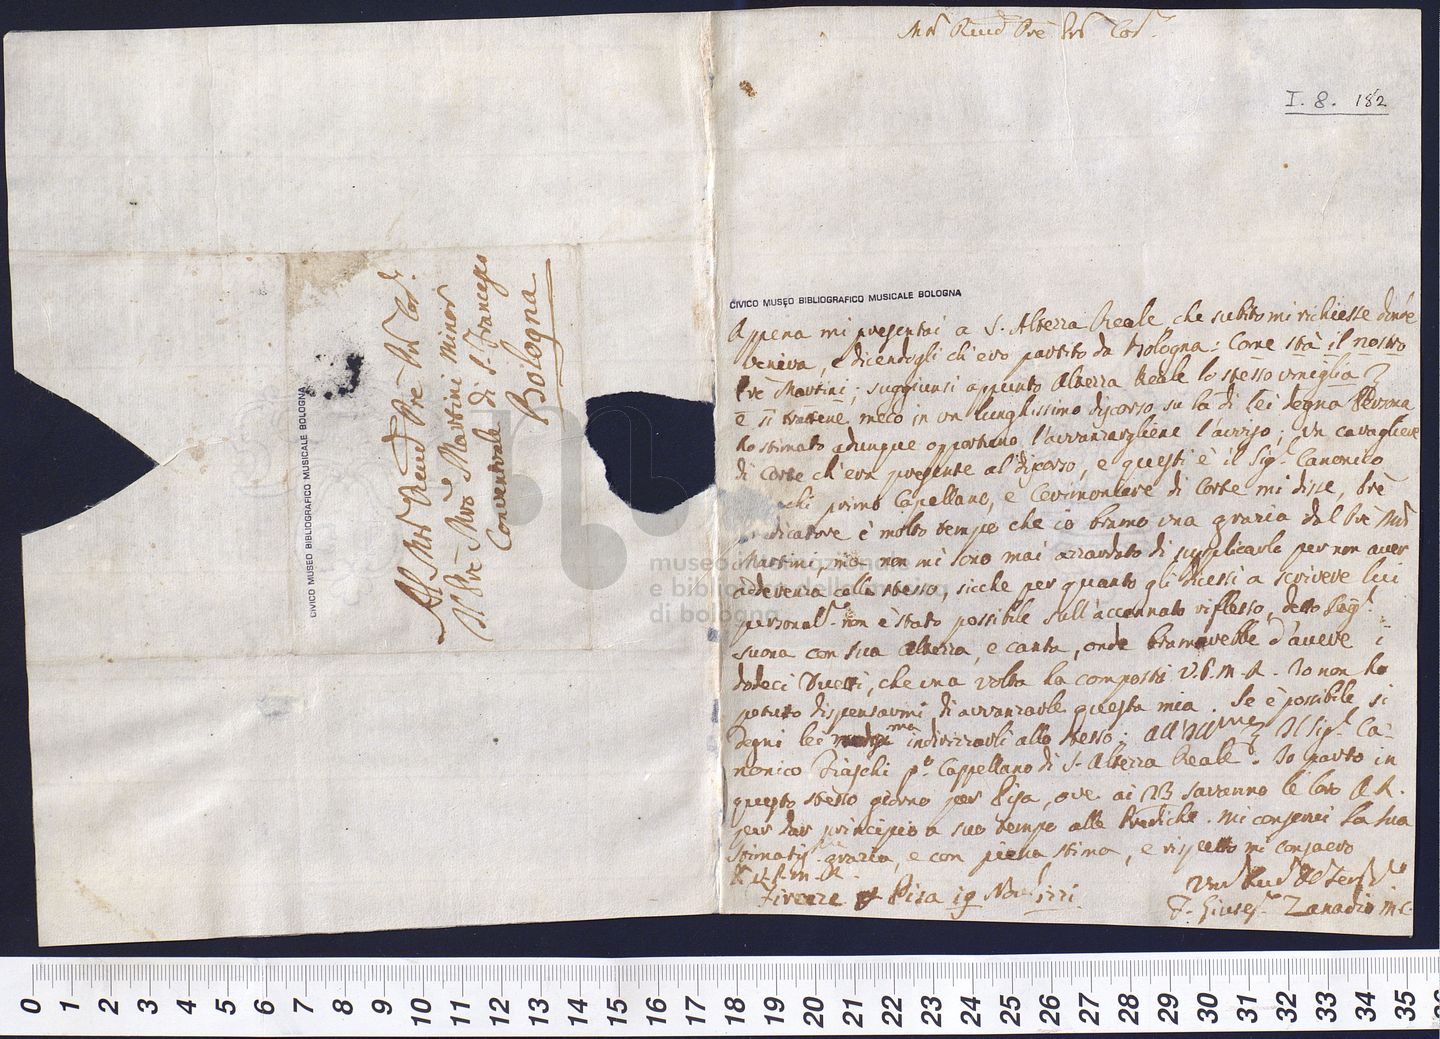 Al Molto Revd Pre Prn Cole
Il Pre Mro Martini Minor
Conventuale di S. Francesco
Bologna
CIVICO MUSEO BIBLIOGRAFICO MUSICALE BOLOGNA
Mto Revd Pre Prn Cole
I. 8. 182
CIVICO MUSEO BIBLIOGRAFICO MUSICALE BOLOGNA
Appena mi presentai a S. Altezza Reale, che subito mi richiesse donde
veniva, e dicendogli ch'ero partito da Bologna: Come stà il nostro
Pre Martini; suggiunsi appunto Altezza Reale lo stesso
e si trattene meco in un lunghissimo discorso su la di lei degna Persona
ho stimato adunque opportuno l'avvanzargliene l'avviso; Un cavagliere
di Corte ch'era presente al discorso, e questi è il Sigr. Canonico
chi primo Capellano, e Cerimoniere di Corte mi disse, Pre
dicatore è molto tempo che io bramo una grazia dal Pre Mro
Martini, ma non mi sono mai azzardato di supplicarlo per non aver
aderenza allo stesso, sicche per quanto gli dicessi a scrivere lui
personale. non è stato possibile sull'accennato riflesso, detto Sigr.
suona con sua Altezza, e canta, onde bramarebbe d'avere i
dodeci Duetti, che una volta ha composti V.P.M.R. Io non ho
potuto dispensarmi di avvanzarle questa mia. Se è possibile, si
degni lei indirizzarli allo stesso; All'Illme Il Sigr. Ca-
nonico Fiaschi po. Cappellano di S. Altezza Reale. Io parto in
questo stesso giorno per Pisa, ove ai 23 saranno le loro A.R.
per dar principio a suo tempo alle Prediche. Mi conservi la sua
stimatissma grazia, e con piena stima, e rispetto mi consacro
D.V.P.M.R.
Firenze Pisa 19 Nove. 1771
F. Giusepe Zanadio M.C.
museo internazionale
e biblioteca della musica
di bologna
0 1 2 3 4 5 6 7 8 9 10 11 12 13 14 15 16 17 18 19 20 21 22 23 24 25 26 27 28 29 30 31 32 33 34 35